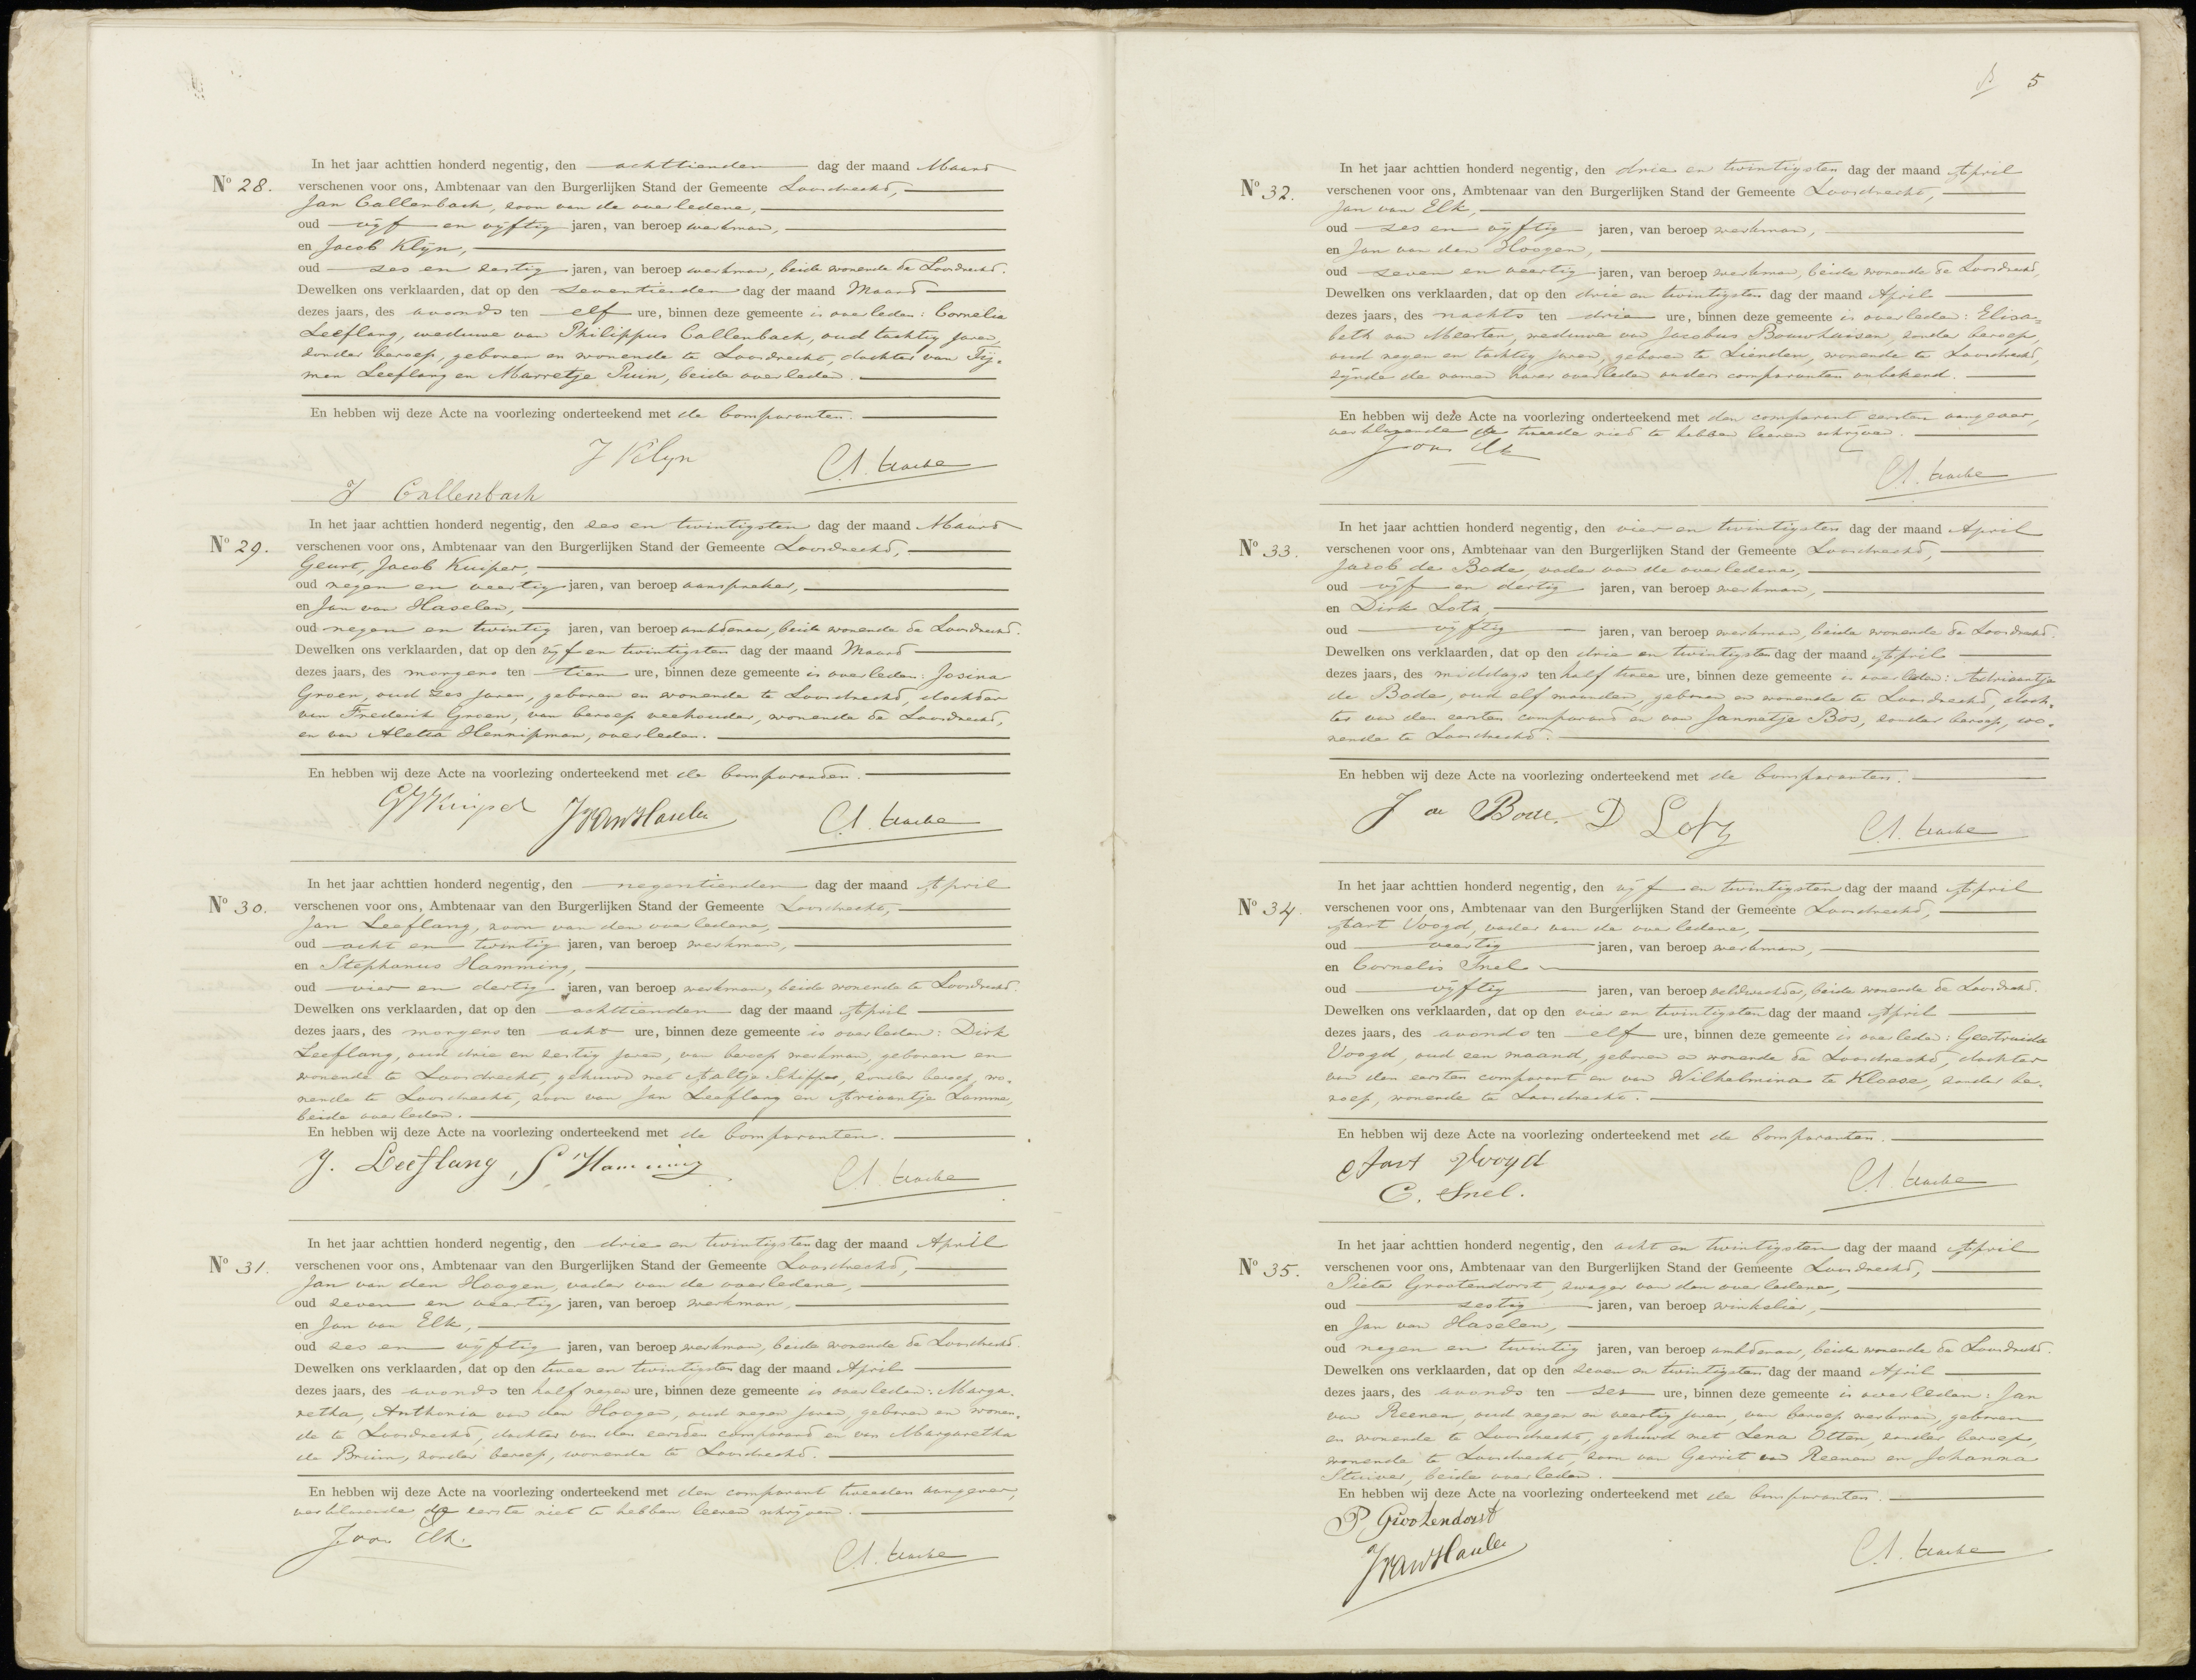 In het jaar achttien honderd negentig, den achttienden dag der maand Maart
No 28.
verschenen voor ons, Ambtenaar van den Burgerlijken Stand der Gemeente Loosdrecht,
Jan Callenbach, zoon van de overledene,
oud vijf en vijftig jaren, van beroep werkman,
en Jacob Klijn,
oud zes en zestig jaren, van beroep werkman, beide wonende te Loosdrecht.
Dewelken ons verklaarden, dat op den zeventienden dag der maand Maart
dezes jaars, des avonds ten elf ure, binnen deze gemeente is overleden: Cornelia
Leeflang, weduwe van Philippus Callenbach, oud tachtig jaren,
zonder beroep, geboren en wonende te Loosdrecht, dochter van Tij-
men Leeflang en Marretje Puin, beide overleden.
En hebben wij deze Acte na voorlezing onderteekend met de Comparanten.
J Klyn
J Callenbach
In het jaar achttien honderd negentig, den zes en twintigsten dag der maand Maart
No 29.
verschenen voor ons, Ambtenaar van den Burgerlijken Stand der Gemeente Loosdrecht,
Geurt, Jacob Kuiper,
oud negen en veertig jaren, van beroep aanspreker,
en Jan van Haselen,
oud negen en twintig jaren, van beroep ambtenaar, beide wonende te Loosdrecht.
Dewelken ons verklaarden, dat op den vijf en twintigsten dag der maand Maart
dezes jaars, des morgens ten tien ure, binnen deze gemeente is overleden: Josina
Groen, oud zes jaren, geboren en wonende te Loosdrecht, dochter
van Frederik Groen, van beroep veehouder, wonende te Loosdrecht,
en van Aletta Hennipman, overleden.
En hebben wij deze Acte na voorlezing onderteekend met de Comparanten.
GJKuiper JvanHaselen
In het jaar achttien honderd negentig, den negentienden dag der maand April
No 30.
verschenen voor ons, Ambtenaar van den Burgerlijken Stand der Gemeente Loosdrecht,
Jan Leeflang, zoon van den overledene,
oud acht en twintig jaren, van beroep werkman,
en Stephanus Hamming,
oud vier en dertig jaren, van beroep werkman, beide wonende te Loosdrecht.
Dewelken ons verklaarden, dat op den achttienden dag der maand April
dezes jaars, des morgens ten acht ure, binnen deze gemeente is overleden: Dirk
Leeflang, oud drie en zestig jaren, van beroep werkman, geboren en
wonende te Loosdrecht, gehuwd met Aaltje Schipper, zonder beroep, wo-
nende te Loosdrecht, zoon van Jan Leeflang en Ariaantje Lamme,
beide overleden.
En hebben wij deze Acte na voorlezing onderteekend met de Comparanten.
J. Leeflang, S. Hamming
In het jaar achttien honderd negentig, den drie en twintigsten dag der maand April
No 31.
verschenen voor ons, Ambtenaar van den Burgerlijken Stand der Gemeente Loosdrecht,
Jan van den Hoogen, vader van de overledene,
oud zeven en veertig jaren, van beroep werkman,
en Jan van Elk,
oud zes en vijftig jaren, van beroep werkman, beide wonende te Loosdrecht.
Dewelken ons verklaarden, dat op den twee en twintigsten dag der maand April
dezes jaars, des avonds ten half negen ure, binnen deze gemeente is overleden: Marga-
retha, Anthonia van den Hoogen, oud negen jaren, geboren en wonen-
de te Loosdrecht, dochter van den eersten comparant en van Margaretha
de Bruin, zonder beroep, wonende te Loosdrecht.
En hebben wij deze Acte na voorlezing onderteekend met den comparant tweeden aangever,
verklarende de eerste niet te hebben leeren schrijven.
J van Elk.
5
In het jaar achttien honderd negentig, den drie en twintigsten dag der maand April
No 32.
verschenen voor ons, Ambtenaar van den Burgerlijken Stand der Gemeente Loosdrecht,
Jan van Elk,
oud zes en vijftig jaren, van beroep werkman,
en Jan van den Hoogen,
oud zeven en veertig jaren, van beroep werkman, beide wonende te Loosdrecht,
Dewelken ons verklaarden, dat op den drie en twintigsten dag der maand April
dezes jaars, des nachts ten drie ure, binnen deze gemeente is overleden: Elisa-
beth van Meerten, weduwe van Jacobus Bouwhuisen, zonder beroep,
oud negen en tachtig jaren, geboren te Lienden, wonende te Loosdrecht,
zijnde de namen harer overleden ouders comparanten onbekend.
En hebben wij deze Acte na voorlezing onderteekend met den comparant eersten aangever,
verklarende de tweede niet te hebben leeren schrijven.
J van Elk
In het jaar achttien honderd negentig, den vier en twintigsten dag der maand April
No 33.
verschenen voor ons, Ambtenaar van den Burgerlijken Stand der Gemeente Loosdrecht,
Jacob de Bode, vader van de overledene,
oud vijf en dertig jaren, van beroep werkman,
en Dirk Lotz,
oud vijftig jaren, van beroep werkman, beide wonende te Loosdrecht.
Dewelken ons verklaarden, dat op den drie en twintigsten dag der maand April
dezes jaars, des middags ten half twee ure, binnen deze gemeente is overleden: Adriaantje
de Bode, oud elf maanden, geboren en wonende te Loosdrecht, doch-
ter van den eersten comparant en van Jannetje Bos, zonder beroep, wo-
nende te Loosdrecht.
En hebben wij deze Acte na voorlezing onderteekend met de Comparanten.
J de Bode. D Lotz
In het jaar achttien honderd negentig, den vijf en twintigsten dag der maand April
No 34.
verschenen voor ons, Ambtenaar van den Burgerlijken Stand der Gemeente Loosdrecht,
Aart Voogd, vader van de overledene,
oud veertig jaren, van beroep werkman,
en Cornelis Snel
oud vijftig jaren, van beroep veldwachter, beide wonende te Loosdrecht.
Dewelken ons verklaarden, dat op den vier en twintigsten dag der maand April
dezes jaars, des avonds ten elf ure, binnen deze gemeente is overleden: Geertruida
Voogd, oud een maand, geboren en wonende te Loosdrecht, dochter
van den eersten comparant en van Wilhelmina te Kloese, zonder be-
roep, wonende te Loosdrecht.
En hebben wij deze Acte na voorlezing onderteekend met de Comparanten.
Aart Voogd
C. Snel.
In het jaar achttien honderd negentig, den acht en twintigsten dag der maand April
No 35.
verschenen voor ons, Ambtenaar van den Burgerlijken Stand der Gemeente Loosdrecht,
Pieter Grootendorst, zwager van den overledene,
oud zestig jaren, van beroep winkelier,
en Jan van Haselen,
oud negen en twintig jaren, van beroep ambtenaar, beide wonende te Loosdrecht.
Dewelken ons verklaarden, dat op den zeven en twintigsten dag der maand April
dezes jaars, des avonds ten zes ure, binnen deze gemeente is overleden: Jan
van Reenen, oud negen en veertig jaren, van beroep werkman, geboren
en wonende te Loosdrecht, gehuwd met Lena Otten, zonder beroep,
wonende te Loosdrecht, zoon van Gerrit van Reenen en Johanna
Stuiver, beide overleden.
En hebben wij deze Acte na voorlezing onderteekend met de Comparanten.
P. Grootendorst
JvanHaselen